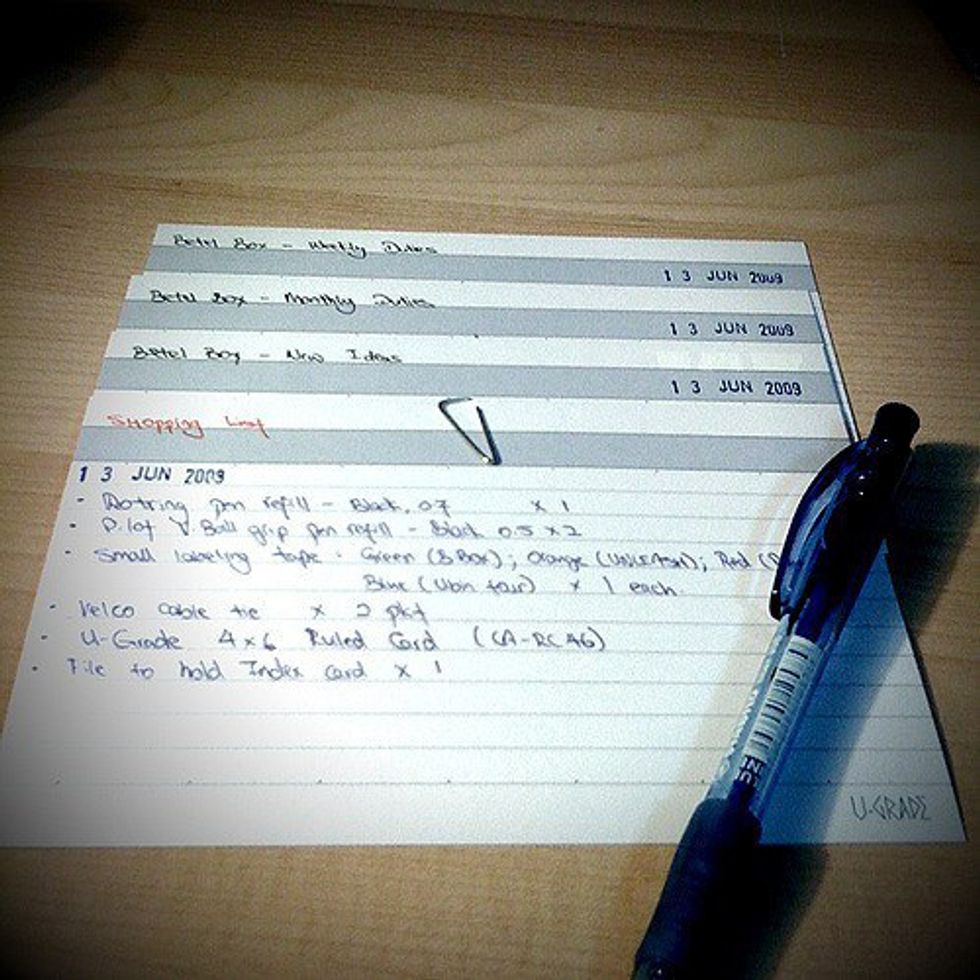 Betel Box - Weekly Duties
13 JUN 2009
Betel Box - Monthly Duties
13 JUN 2009
Betel Box - New Ideas
13 JUN 2009
Shopping List
13 JUN 2009
- Rotring pen refill - Black, 0.7 x 1
- Pilot V Ball grip pen refill - Black 0.5 x 2
- Small labeling tape - Green (BBox); Orange (UNLEASH); Red
Blue (Ubin fair) x 1 each
- Velco cable tie x 2 pkt
- U-Grade 4x6 Ruled Card (CA-RC46)
- File to hold Index Card x 1
U-GRADE